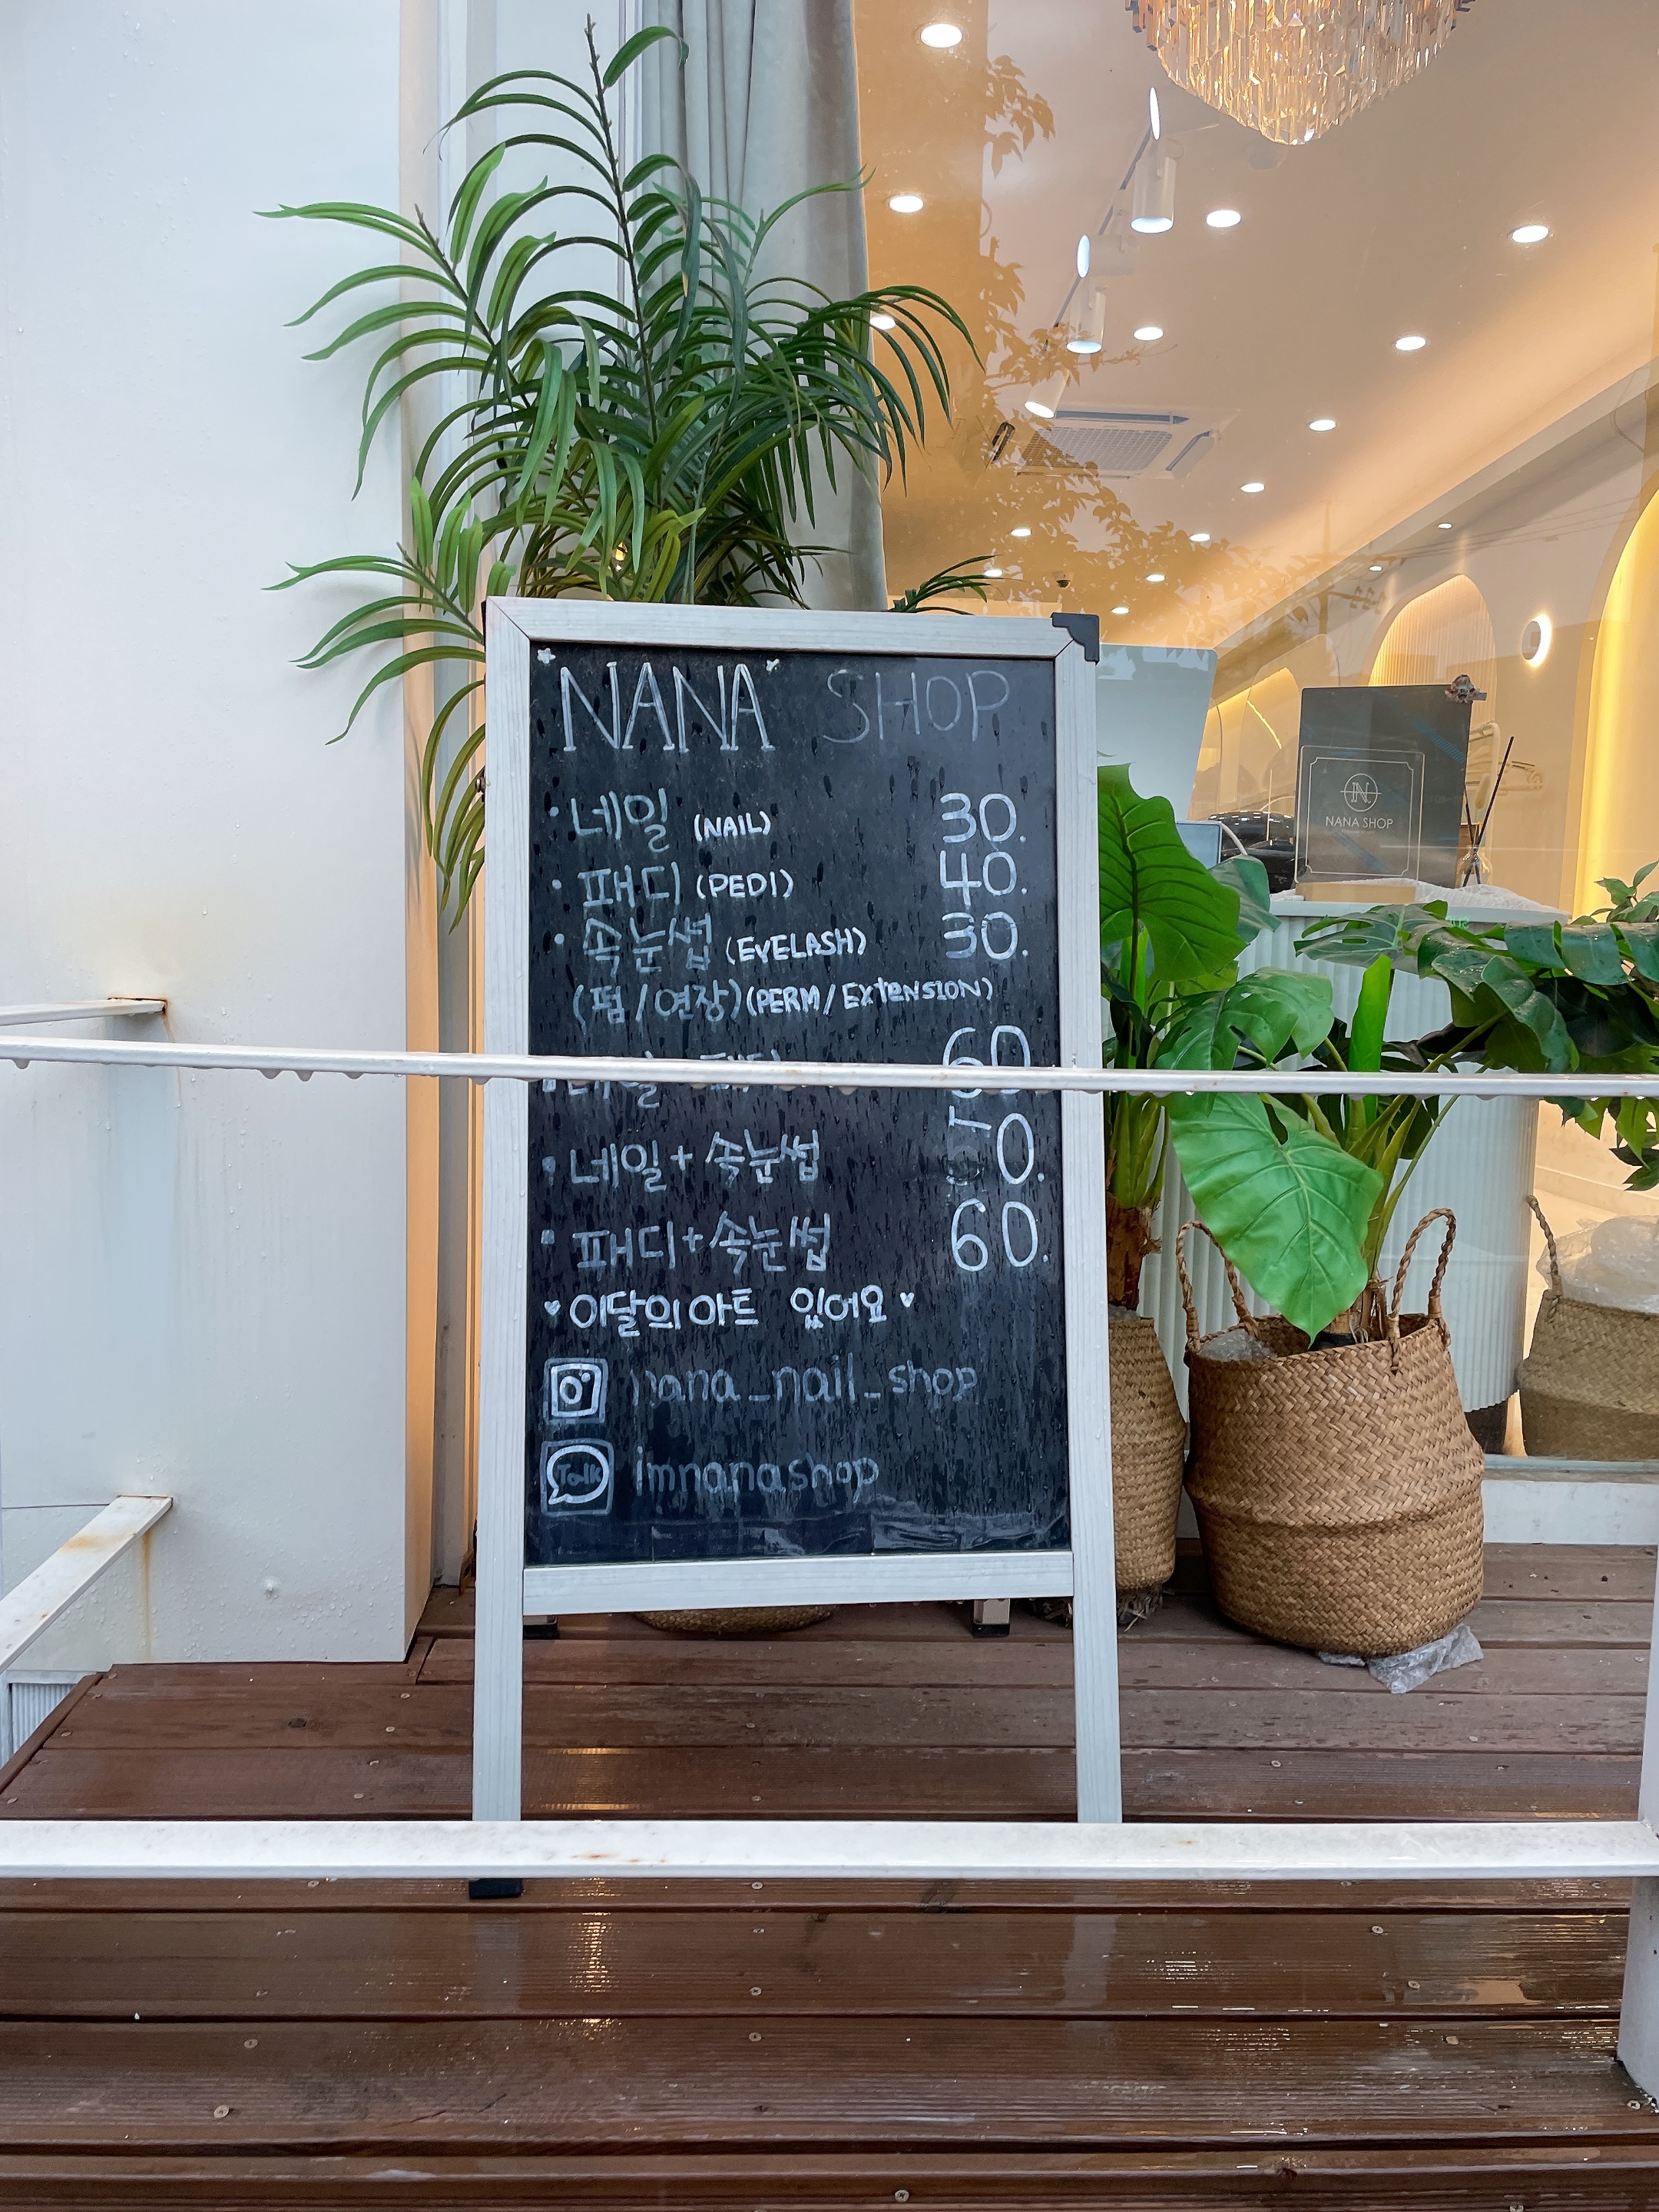 NANA SHOP
· 네일 (NAIL) 30.
· 패디 (PEDI) 40.
· 속눈썹 (EYELASH) 30.
(펌/연장) (PERM/EXtENSION)
60
· 네일+속눈썹 50.
· 패디+속눈썹 60.
♥ 이달의아트 있어요 ♥
nana_nail_shop
Talk imnanashop
N
NANA SHOP